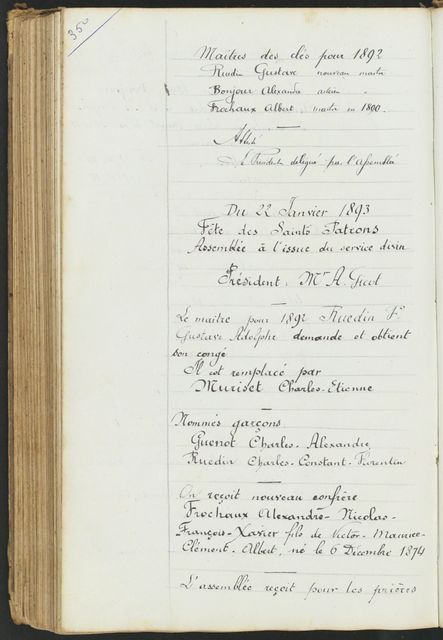 350
Maîtres des clés pour 1892
Ruedin Gustave nouveau maître
Bonjour Alexandre ancien "
Frochaux Albert maître en 1890.
Attesté
Le Président délégué par l'Assemblée
Du 22 Janvier 1893
Fête des Saints Patrons
Assemblée à l'issue du service divin
Président, Mr A. Gicot
Le maître pour 1892 Ruedin Fs
Gustave Adolphe demande et obtient
son congé
Il est remplacé par
Muriset Charles-Etienne
Nommés garçons
Guenot Charles-Alexandre
Ruedin Charles-Constant-Florentin
On reçoit nouveau confrère
Frochaux Alexandre-Nicolas-
François-Xavier fils de Victor-Maurice-
Clément-Albert, né le 6 Décembre 1874
L'assemblée reçoit pour les prières